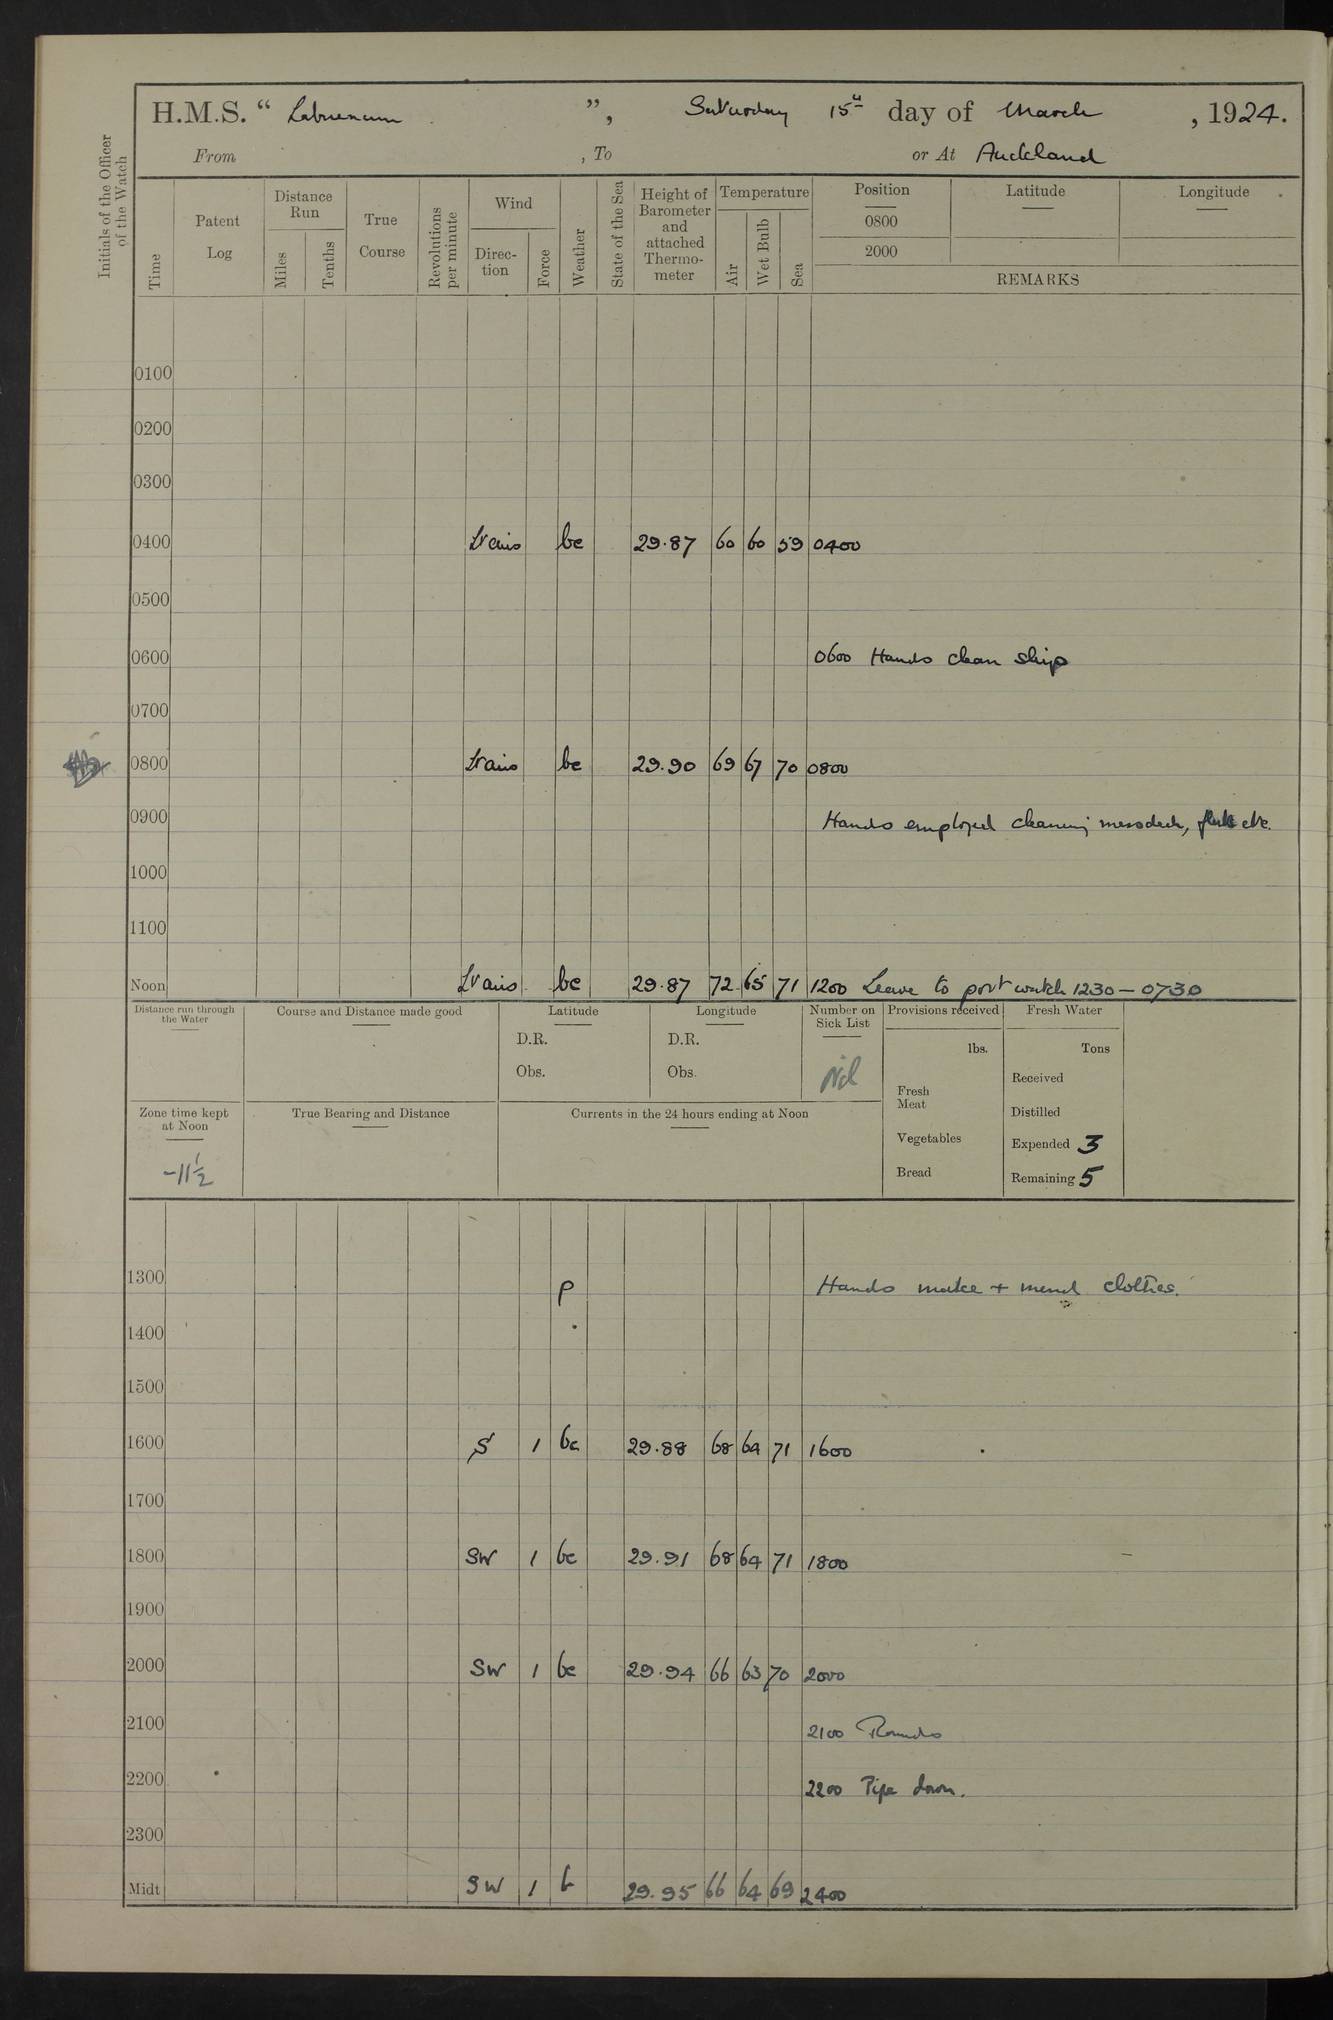 H.M.S. “ Laburnum ”, Saturday 15th day of March , 1924.
From , To or At Auckland
Initials of the Officer of the Watch
Time
Patent Log
Distance Run
Miles
Tenths
True Course
Revolutions per minute
Wind
Direc-tion
Force
Weather
State of the Sea
Height of Barometer and attached Thermo-meter
Temperature
Air
Wet Bulb
Sea
Position Latitude Longitude
0800
2000
REMARKS
0100
0200
0300
0400 Lrairs bc 29.87 60 60 59 0400
0500
0600 0600 Hands clean ship
0700
0800 Lrairs bc 29.90 69 67 70 0800
0900 Hands employed cleaning messdeck, flats etc.
1000
1100
Noon Lrairs bc 29.87 72 65 71 1200 Leave to port watch 1230 – 0730
Distance run through the Water
Course and Distance made good
Latitude
D.R.
Obs.
Longitude
D.R.
Obs.
Number on Sick List
Nil
Provisions received
lbs.
Fresh Meat
Vegetables
Bread
Fresh Water
Tons
Received
Distilled
Expended 3
Remaining 5
Zone time kept at Noon
-11½
True Bearing and Distance
Currents in the 24 hours ending at Noon
1300 p Hands make + mend clothes.
1400
1500
1600 S 1 bc 29.88 68 64 71 1600
1700
1800 SW 1 bc 29.91 68 64 71 1800
1900
2000 SW 1 bc 29.94 66 63 70 2000
2100 2100 Rounds
2200 2200 Pipe down.
2300
Midt SW 1 b 29.95 66 64 69 2400